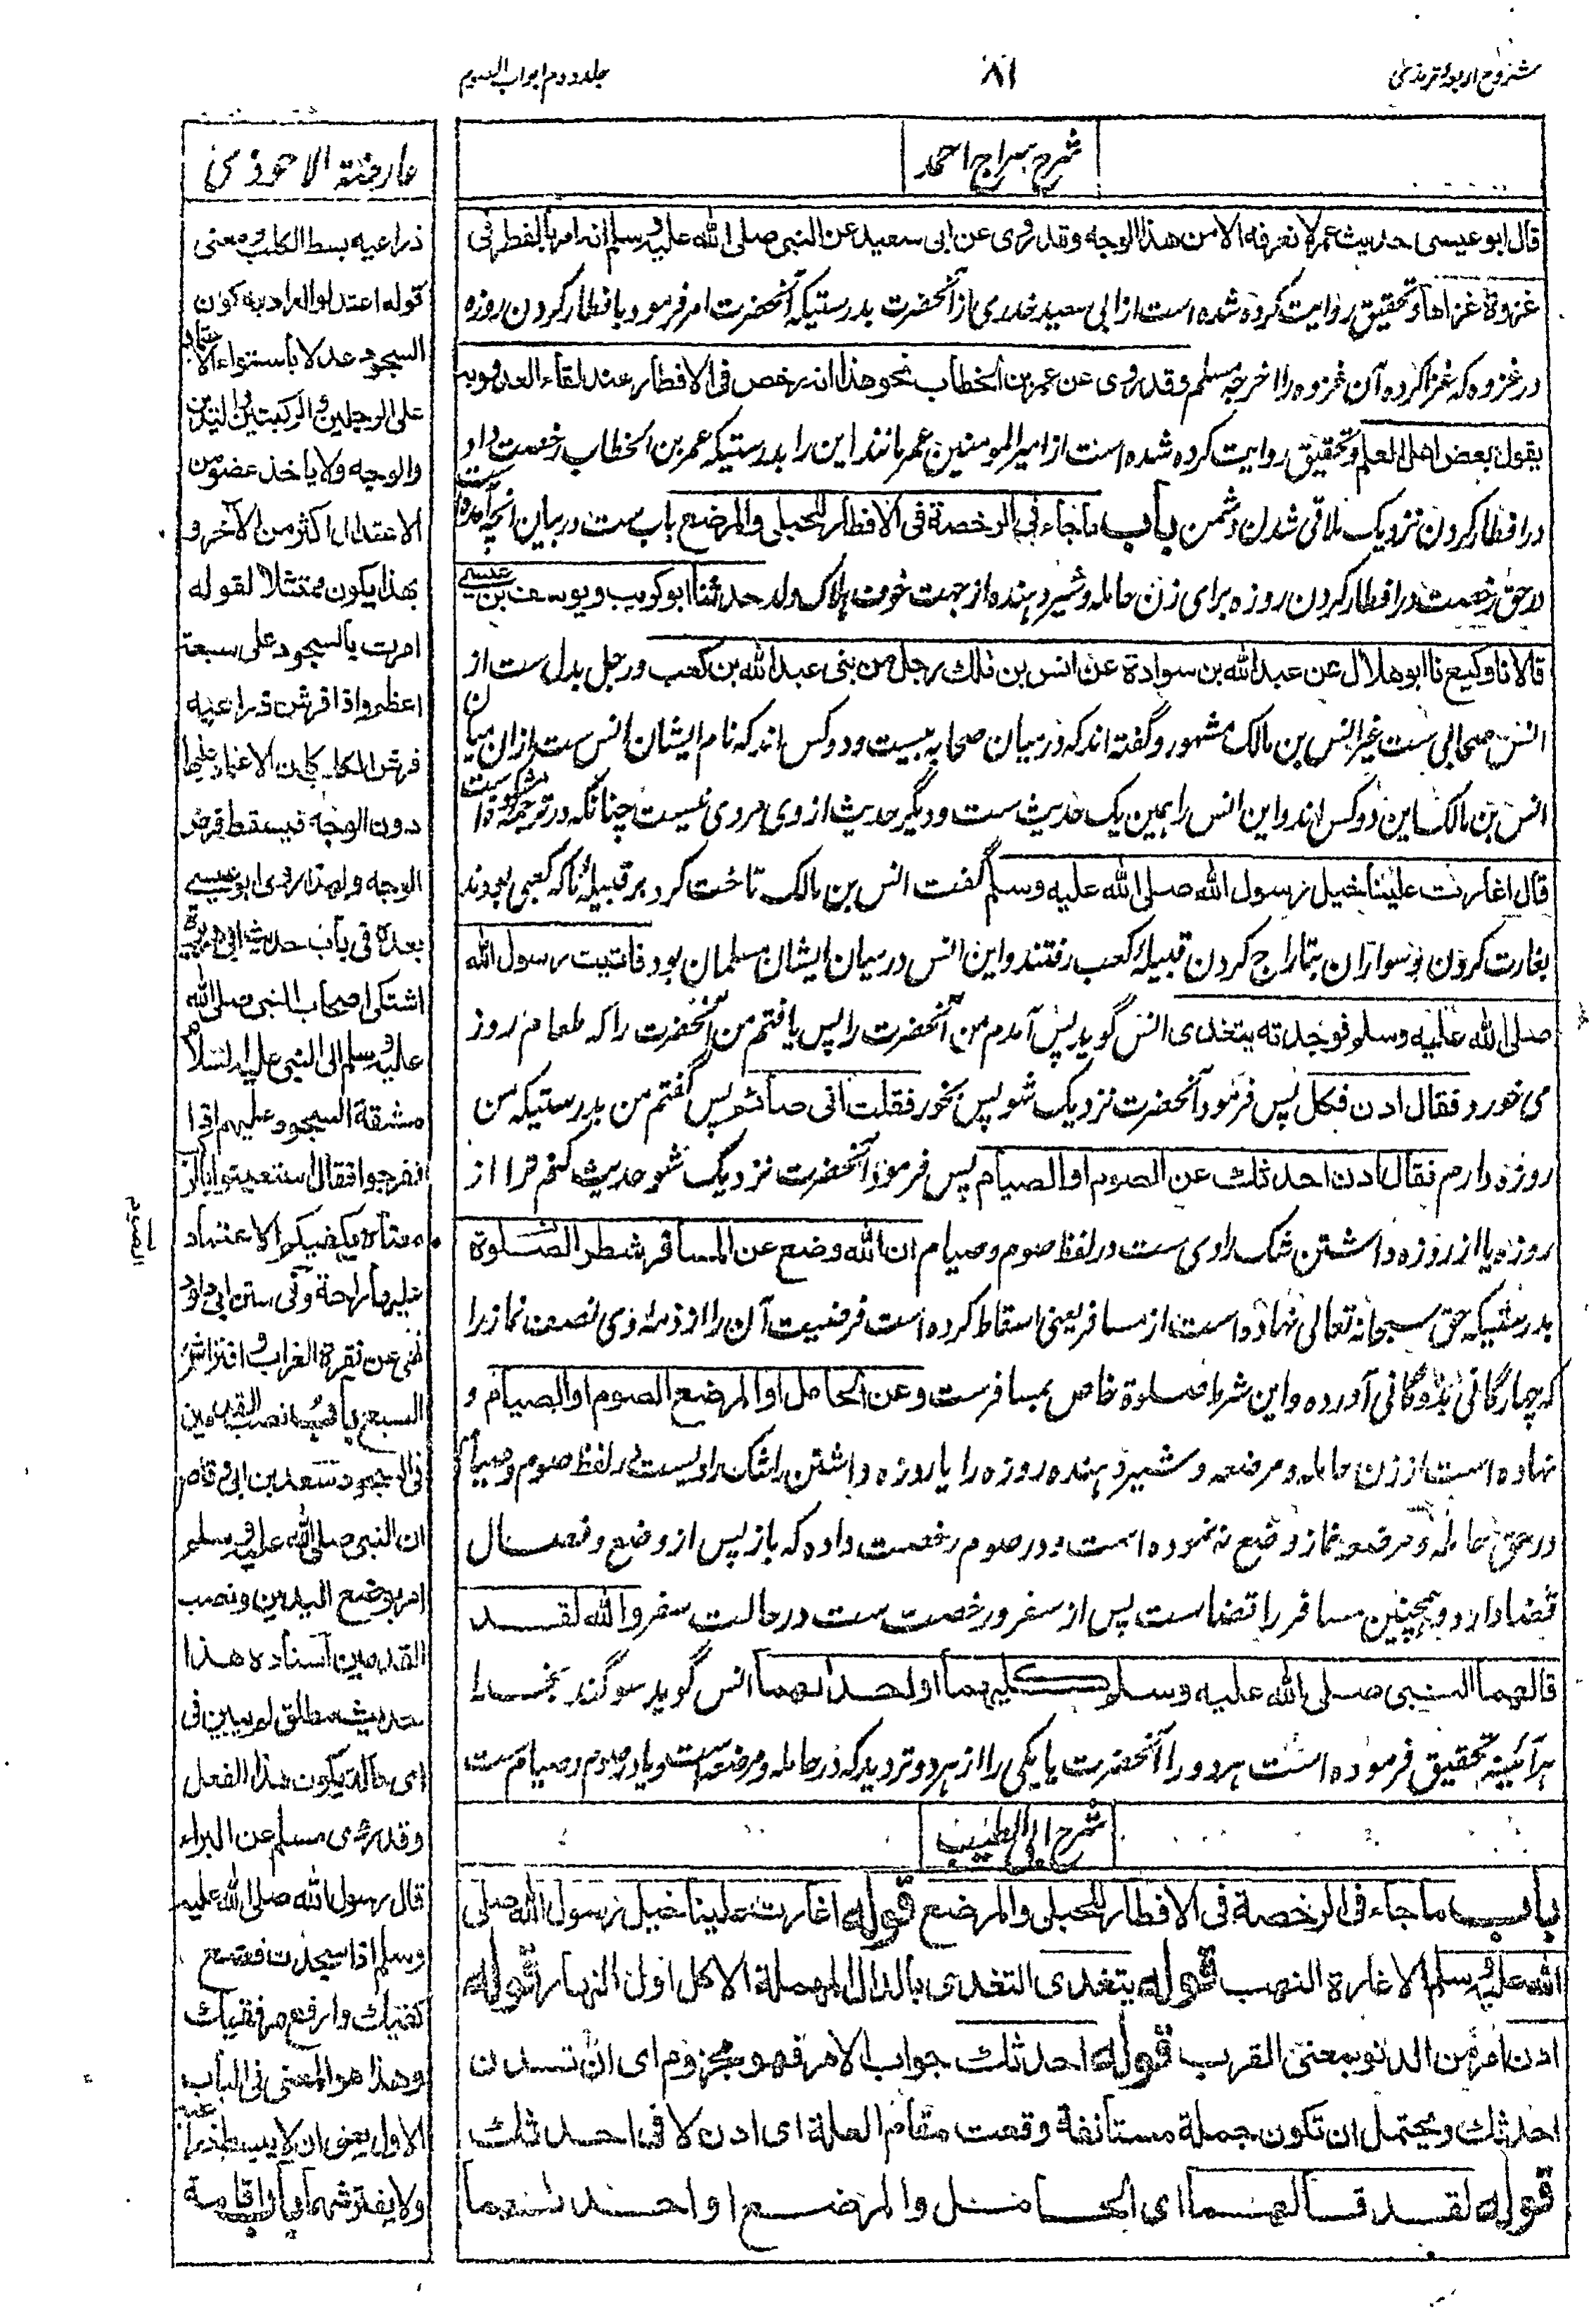 شروح اربعه ترمذی
۸۱
جلد دوم ابواب الصوم
شرح سراج احمد
قال ابو عیسی حدیث عمر لا نعرفه الا من هذا الوجه وقد روی عن ابی سعید عن النبی صلی الله علیه وسلم انه امر بالفطر فی
غزوة غزاها وتحقیق روایت کرده شده است از ابی سعید خدری از آنحضرت بدرستیکه آنحضرت امر فرمود بافطار کردن روزه
در غزوه که غزا کرده آن غزوه را اخرجه مسلم وقد روی عن عمر بن الخطاب نحو هذا انه رخص فی الافطار عند لقاء العدو وبه
یقول بعض اهل العلم وتحقیق روایت کرده شده است از امیر المومنین عمر مانند این را بدرستیکه عمر بن الخطاب رخصت داد
در افطار کردن نزدیک ملاقی شدن دشمن باب ما جاء فی الرخصة فی الافطار للحبلی والمرضع باب ست در بیان آنچه آمده است
در حق رخصت در افطار کردن روزه برای زن حامله و شیر دهنده از جهت خوف هلاک ولد حدثنا ابو کریب و یوسف بن عیسی
قالا نا وکیع نا ابو هلال عن عبد الله بن سوادة عن انس بن مالک رجل من بنی عبد الله بن کعب ورجل بدل ست از
انس صحابی ست غیر انس بن مالک مشهور و گفته اند که در میان صحابه بیست و دو کس اند که نام ایشان انس ست ازان میان
انس بن مالک این دو کس اند و این انس را همین یک حدیث ست و دیگر حدیث از وی مروی نیست چنانکه در ترجمه مشکوة است
قال اغارت علینا خیل رسول الله صلی الله علیه وسلم گفت انس بن مالک تاخت کرد بر قبیله ما که کعبی بودند
بغارت کردن و سواران بتاراج کردن قبیله کعب رفتند و این انس در میان ایشان مسلمان بود فاتیت رسول الله
صلی الله علیه وسلم فوجدته یتغدی انس گوید پس آمدم من آنحضرت را پس یافتم من آنحضرت را که طعام روز
می خورد فقال ادن فکل پس فرمود آنحضرت نزدیک شو پس بخور فقلت انی صائم پس گفتم من بدرستیکه من
روزه دارم فقال ادن احدثک عن الصوم او الصیام پس فرمود آنحضرت نزدیک شو حدیث کنم ترا از
روزه یا از روزه داشتن شک راوی ست در لفظ صوم و صیام ان الله وضع عن المسافر شطر الصلوة
بدرستیکه حق سبحانه تعالی نهاده است از مسافر یعنی اسقاط کرده است فرضیت آن را از ذمه وی نصف نماز را
که چهارگانی بدوگانی آورده و این شرط صلوة خاص بمسافرست وعن الحامل او المرضع الصوم او الصیام و
نهاده است از زن حامله و مرضعه و شیر دهنده روزه را یا روزه داشتن را شک راویست در لفظ صوم و صیام
در حق حامله و مرضعه نماز وضع نه نموده است و در صوم رخصت داده که باز پس از وضع و فصال
قضا دارد و همچنین مسافر را قضا ست پس از سفر و رخصت ست در حالت سفر والله لقد
قالهما النبی صلی الله علیه وسلم کلیهما او احدهما انس گوید سوگند بخدا
هر آئینه بتحقیق فرموده است هر دو را آنحضرت یا یکی را از هر دو تردید که در حامله و مرضعه است و یا در صوم و صیام ست
شرح ابی الطیب
باب ما جاء فی الرخصة فی الافطار للحبلی والمرضع قوله اغارت علینا خیل رسول الله صلی
الله علیه وسلم الاغارة النهب قوله یتغدی التغدی بالدال المهملة الاکل اول النهار قوله
ادن امر من الدنو بمعنی القرب قوله احدثک جواب الامر فهو مجزوم ای ان تدن
احدثک ویحتمل ان تکون جملة مستأنفة وقعت مقام العلة ای ادن لانی احدثک
قوله لقد قالهما ای الحامل والمرضع او احدهما
عارضة الاحوذی
ذراعیه بسط الکلب ومعنی
قوله اعتدلوا المراد به کون
السجود عدلا باستواء الاعتماد
علی الرجلین والرکبتین والیدین
والوجه ولا یاخذ عضو من
الاعتدال اکثر من الآخر و
بهذا یکون ممتثلا لقوله
امرت بالسجود علی سبعة
اعظم واذا فرش ذراعیه
فرش الکلب کان الاعتماد علیها
دون الوجه فیسقط فرض
الوجه ولهذا روی ابو عیسی
بعده فی باب حدیث ابی هریرة
اشتکی اصحاب النبی صلی الله
علیه وسلم الی النبی علیه السلام
مشقة السجود علیهم اذا
انفرجوا فقال استعینوا بالرکب
معناه یکفیکم الاعتماد
علیها راحة وفی سنن ابی داود
نهی عن نقرة الغراب وافتراش
السبع باب نصب القدمین
فی السجود سعد بن ابی وقاص
ان النبی صلی الله علیه وسلم
امر بوضع الیدین ونصب
القدمین اسناده هذا
حدیث مطلق لم یبین فی
ای حالة یکون هذا الفعل
وقد روی مسلم عن البراء
قال رسول الله صلی الله علیه
وسلم اذا سجدت فضع
کفیک وارفع مرفقیک
وهذا هو المعنی فی الباب
الاول یعنی ان لا یبسط ذراعیه
ولا یفترشهما باب اقامة